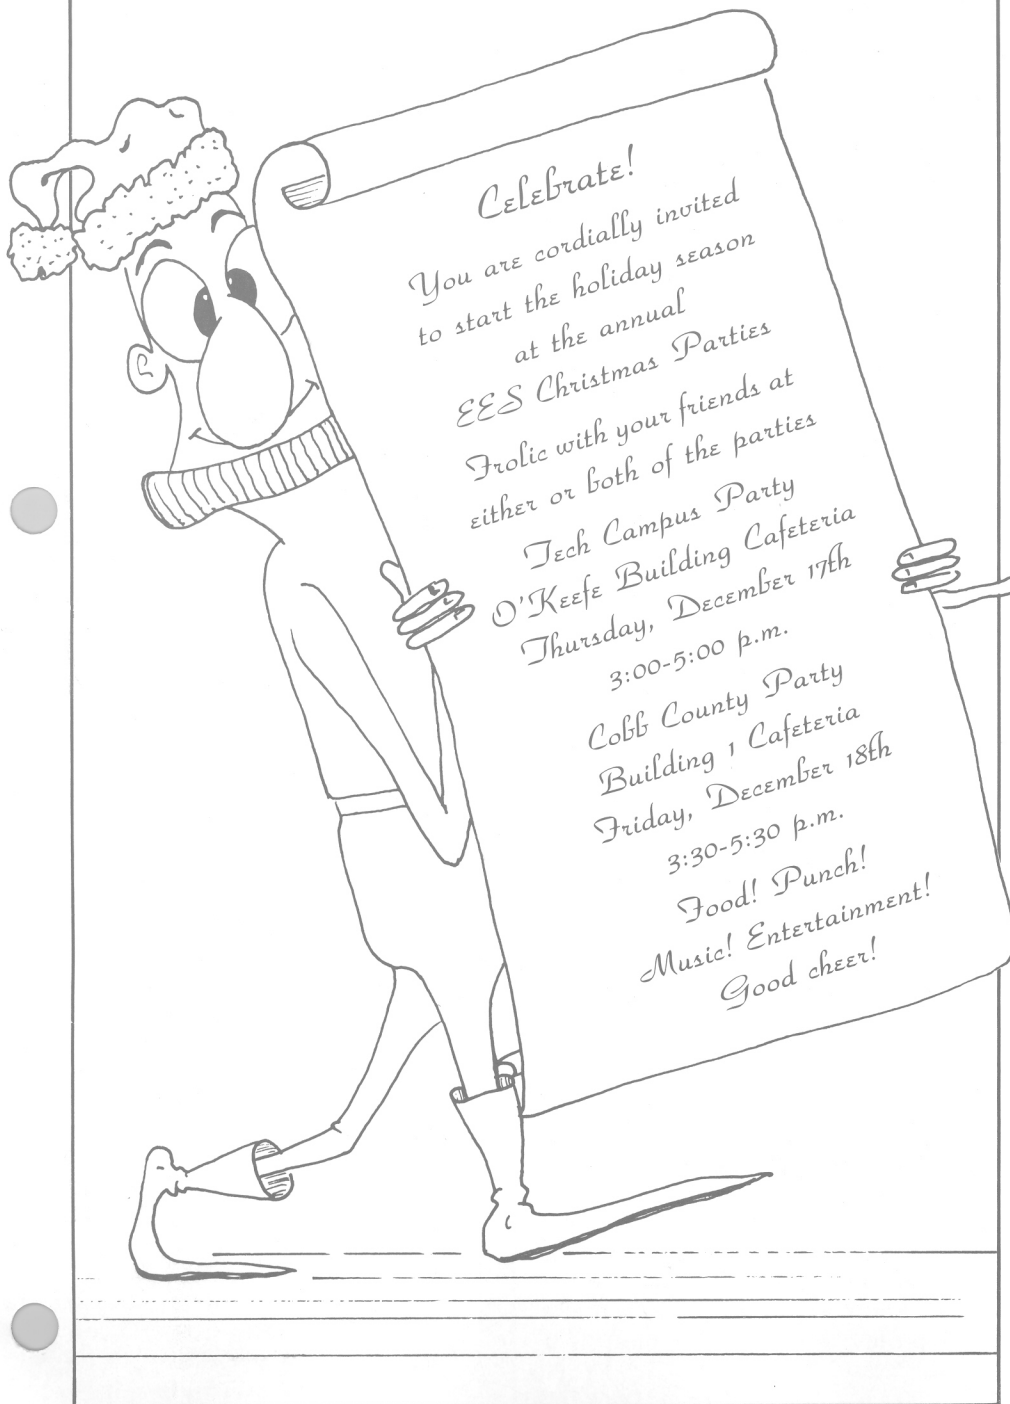 Celebrate!
You are cordially invited
to start the holiday season
at the annual
EES Christmas Parties
Frolic with your friends at
either or both of the parties
Tech Campus Party
O'Keefe Building Cafeteria
Thursday, December 17th
3:00-5:00 p.m.
Cobb County Party
Building 1 Cafeteria
Friday, December 18th
3:30-5:30 p.m.
Food! Punch!
Music! Entertainment!
Good cheer!